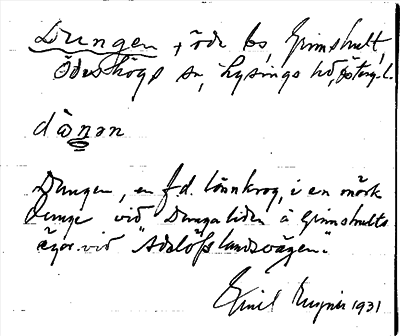 Dungen, öde bs, Grimshult,
Ödeshögs sn, Lysings hd, Östergl.
dàŋən
Dungen, en f.d. lönnkrog, i en mörk
dunge vid Dungaliden å Grimshults
ägor vid "Adelöfslandsvägen".
Emil 1931